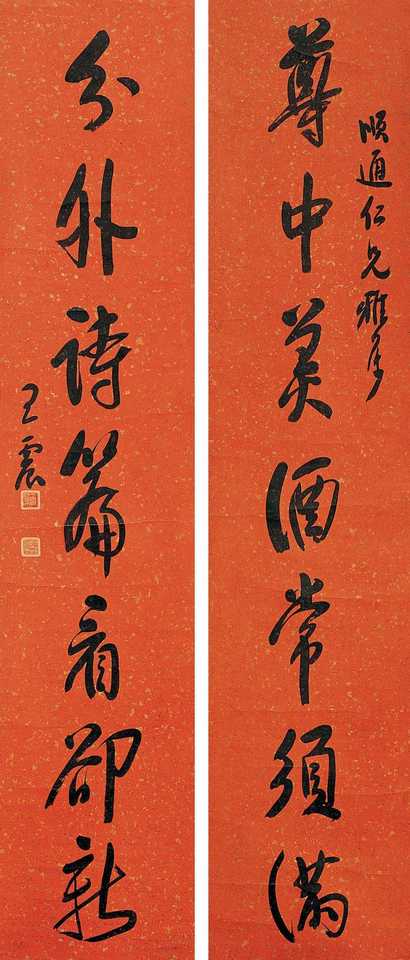 順通仁兄雅屬
尊中美酒常須滿
分外詩篇看卻新
王震